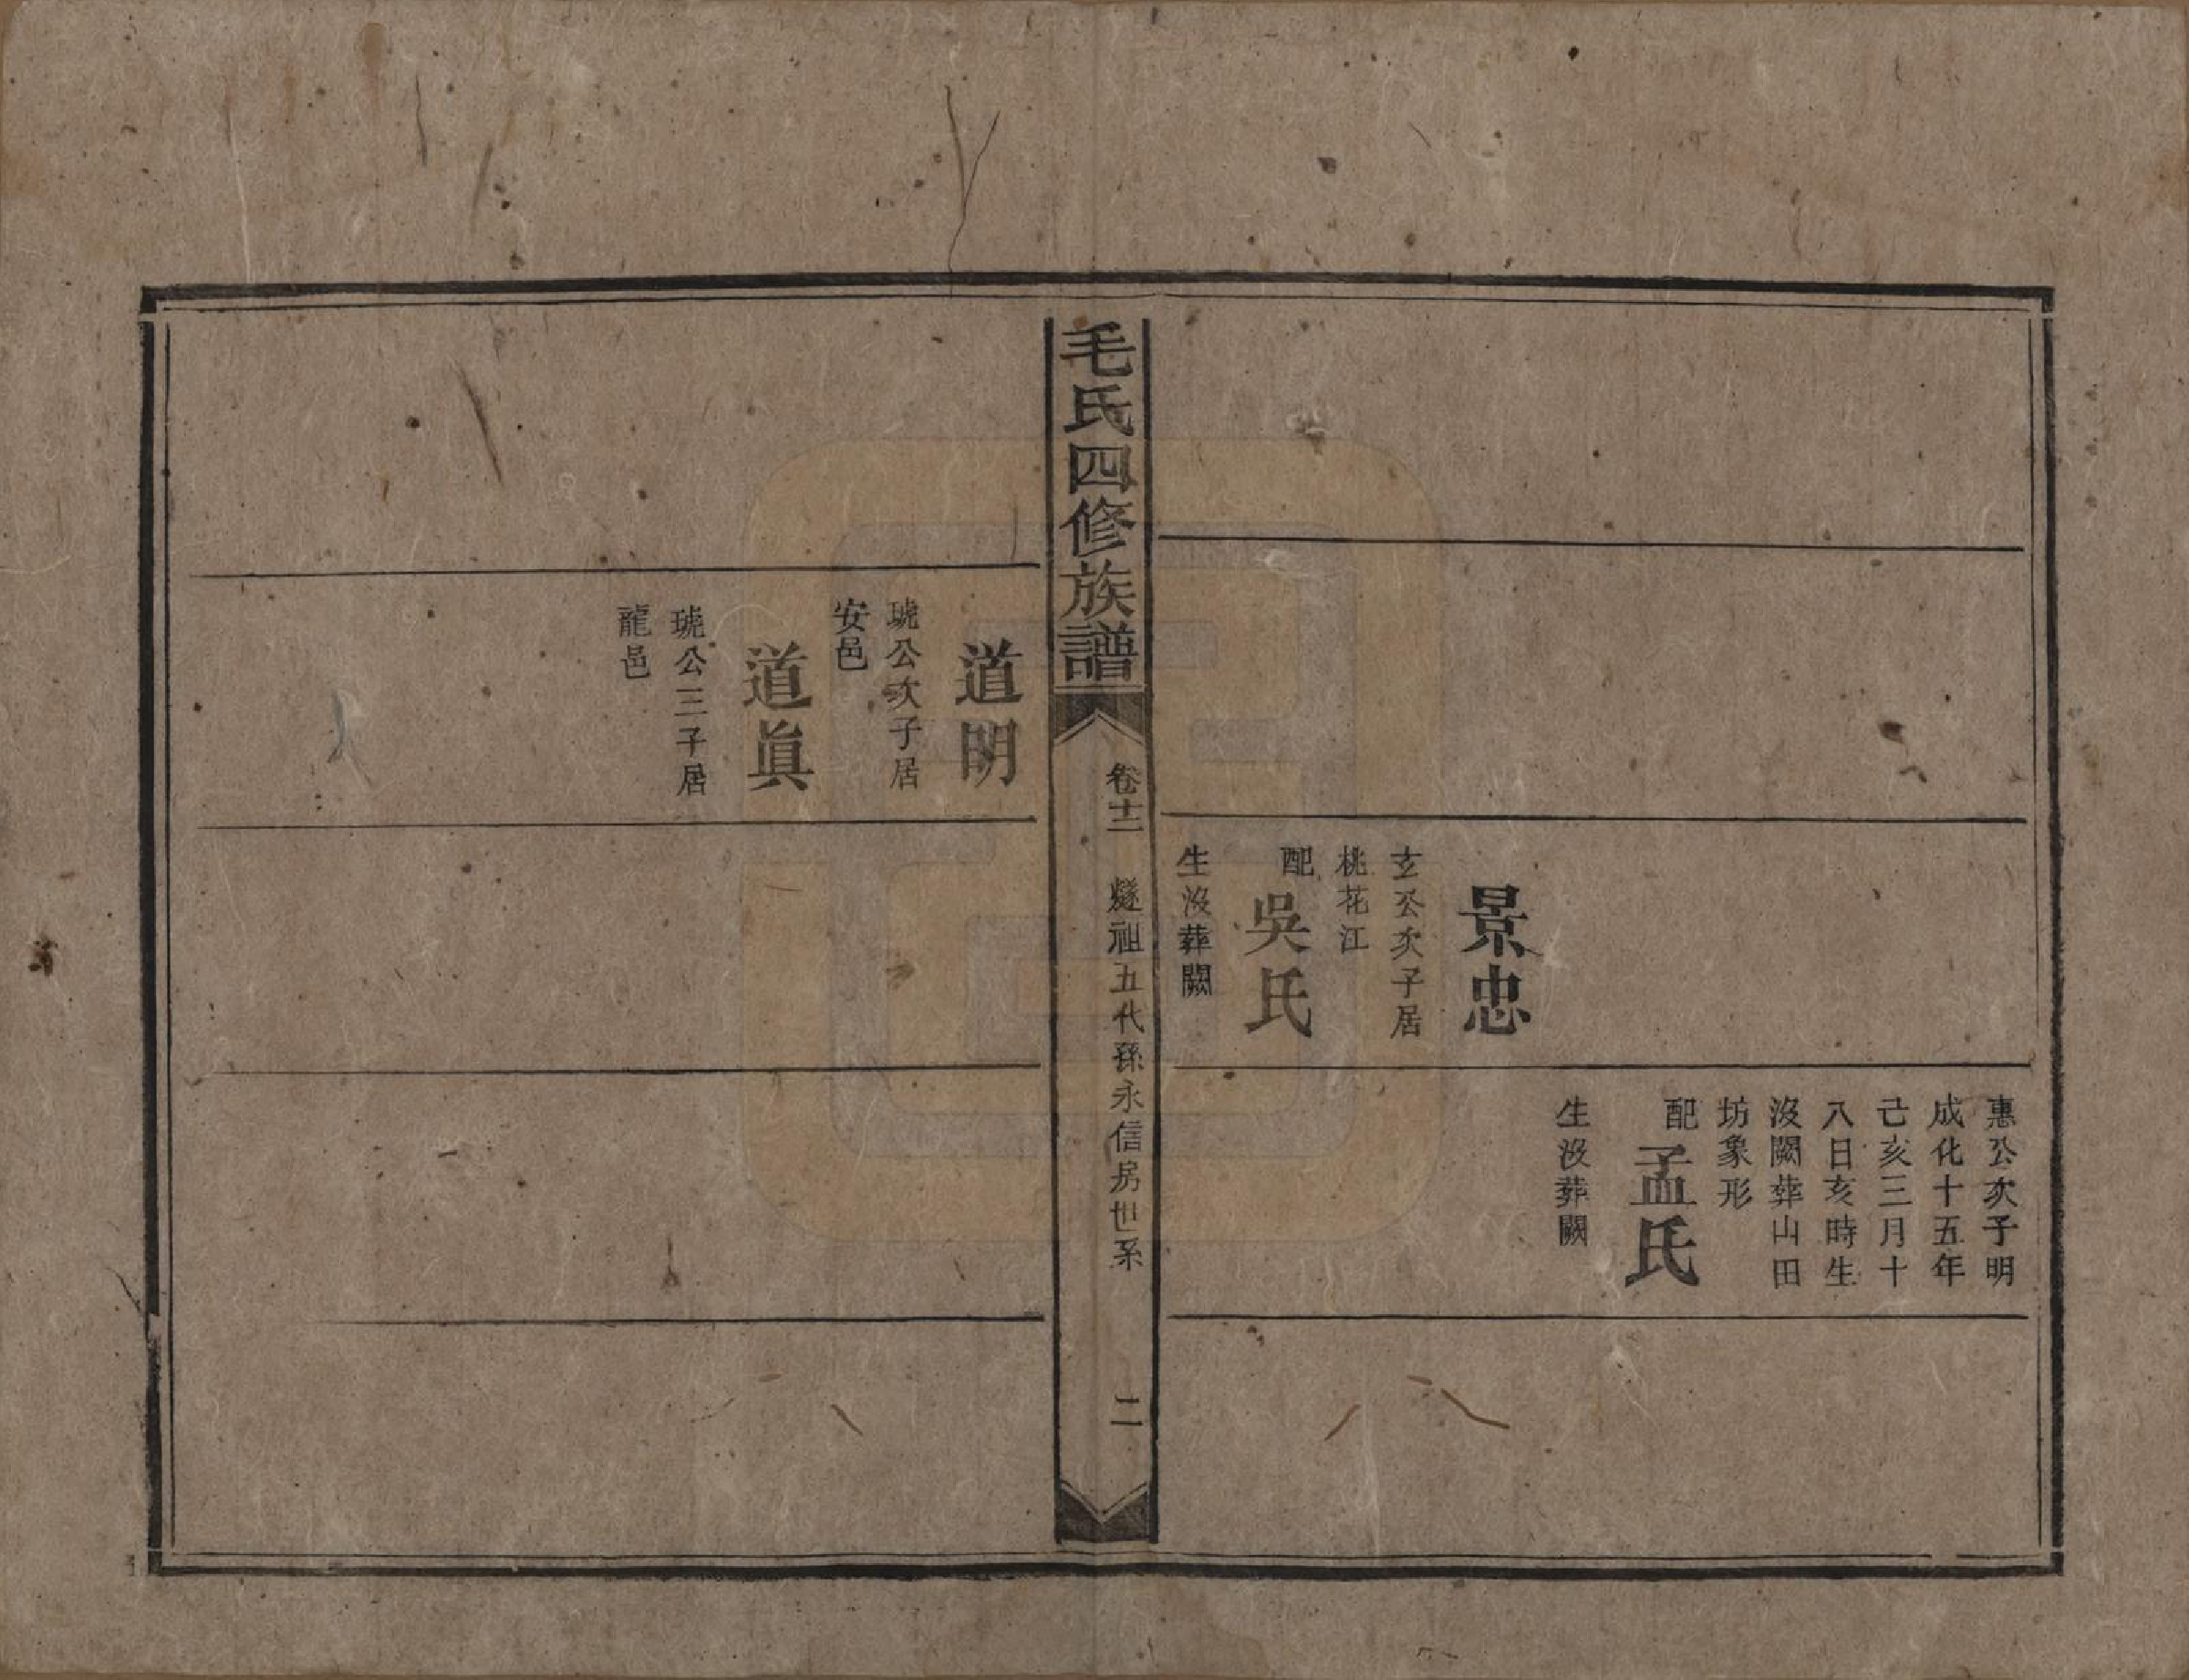 惠公次子明
成化十五年
己亥三月十
八日亥時生
沒闕葬山田
坊象形
配孟氏
生沒葬闕
景忠
玄公次子居
桃花江
配吳氏
生沒葬闕
毛氏四修族譜
卷十二
燧祖五代孫永信房世系
二
道明
琥公次子居
安邑
道眞
琥公三子居
龍邑